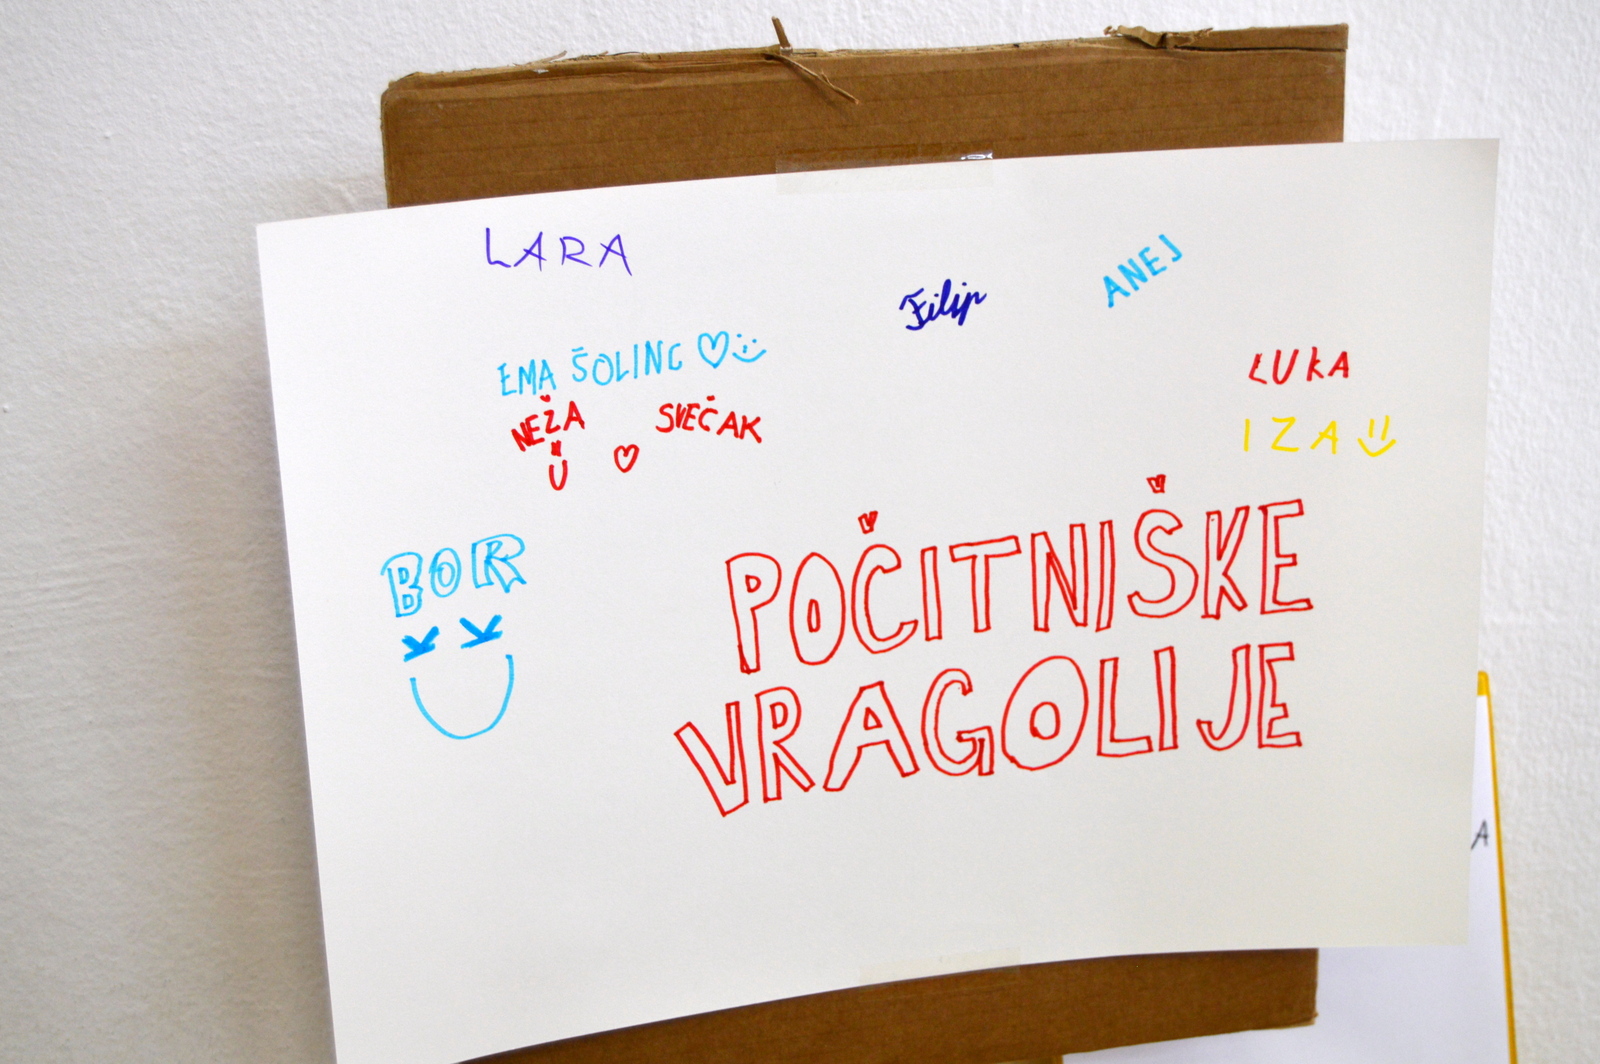 LARA
Filip
ANEJ
EMA ŠOLINC
LUKA
NEŽA SVEČAK
IZA
BOR
POČITNIŠKE
VRAGOLIJE
A